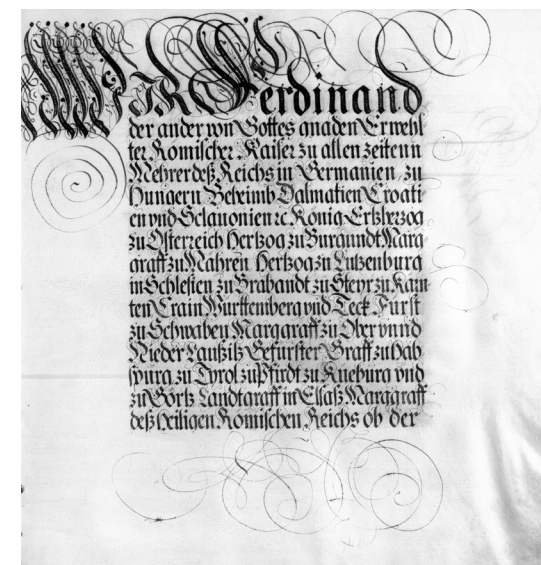 WIR Ferdinand
der ander von Gottes gnaden Erwehl
ter Romischer Kaiser zu allen zeiten
Mehrer deß Reichs in Germanien, zu
Hungern Beheimb Dalmatien Croati
en vnd Sclauonien ꝛc. König Ertzherzog
zu Osterreich Hertzog zu Burgundt Marg
graff zu Mahren Hertzog zu Lutzenburg
in Schlesien zu Brabandt zu Steyr zu Kärn
ten Crain Wurttemberg vnd Teck Furst
zu Schwaben Marggraff zu Ober vnnd
Nieder Laußitz Gefurster Graff zu Hab
spurg zu Tyrol zu Pfirdt zu Kyeburg vnd
zu Görtz Landtgraff in Ellaß Marggraff
deß Heiligen Romischen Reichs ob der